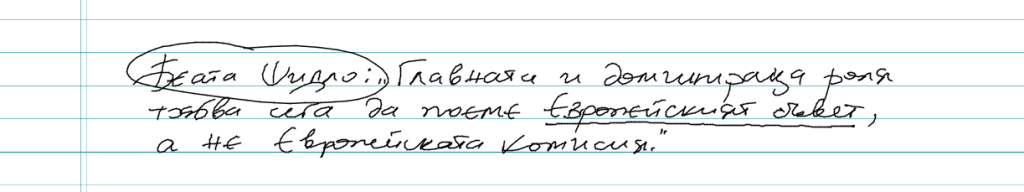 Беата Шидло: „Главната и доминираща роля
трябва сега да поеме Европейският съвет,
а не Европейската комисия."